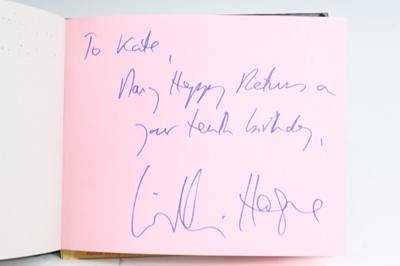 To Kate,
Many Happy Returns on
your tenth birthday,
William Hague